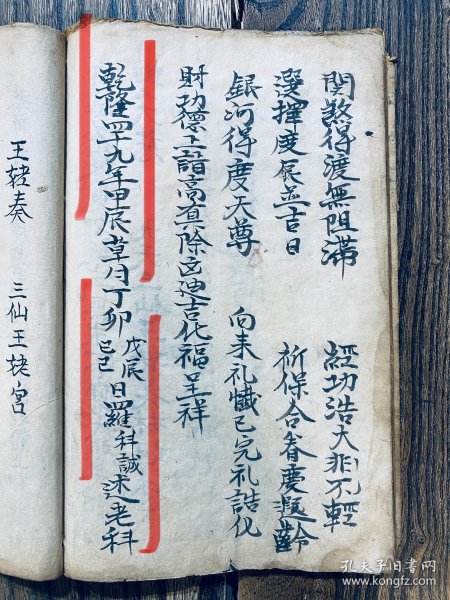 関煞得渡無阻滞　經功浩大非不輕
選擇良辰並吉日　祈保合眷慶遐齡
銀河得度天尊　向来礼懺已完礼誥化
財功德上詣高真除凶迪吉化福呈祥
乾隆四十九年甲辰草月丁卯戊辰己巳日羅科誠述老科
王姥奏　三仙王姥宮
孔夫子旧书网
www.kongfz.com